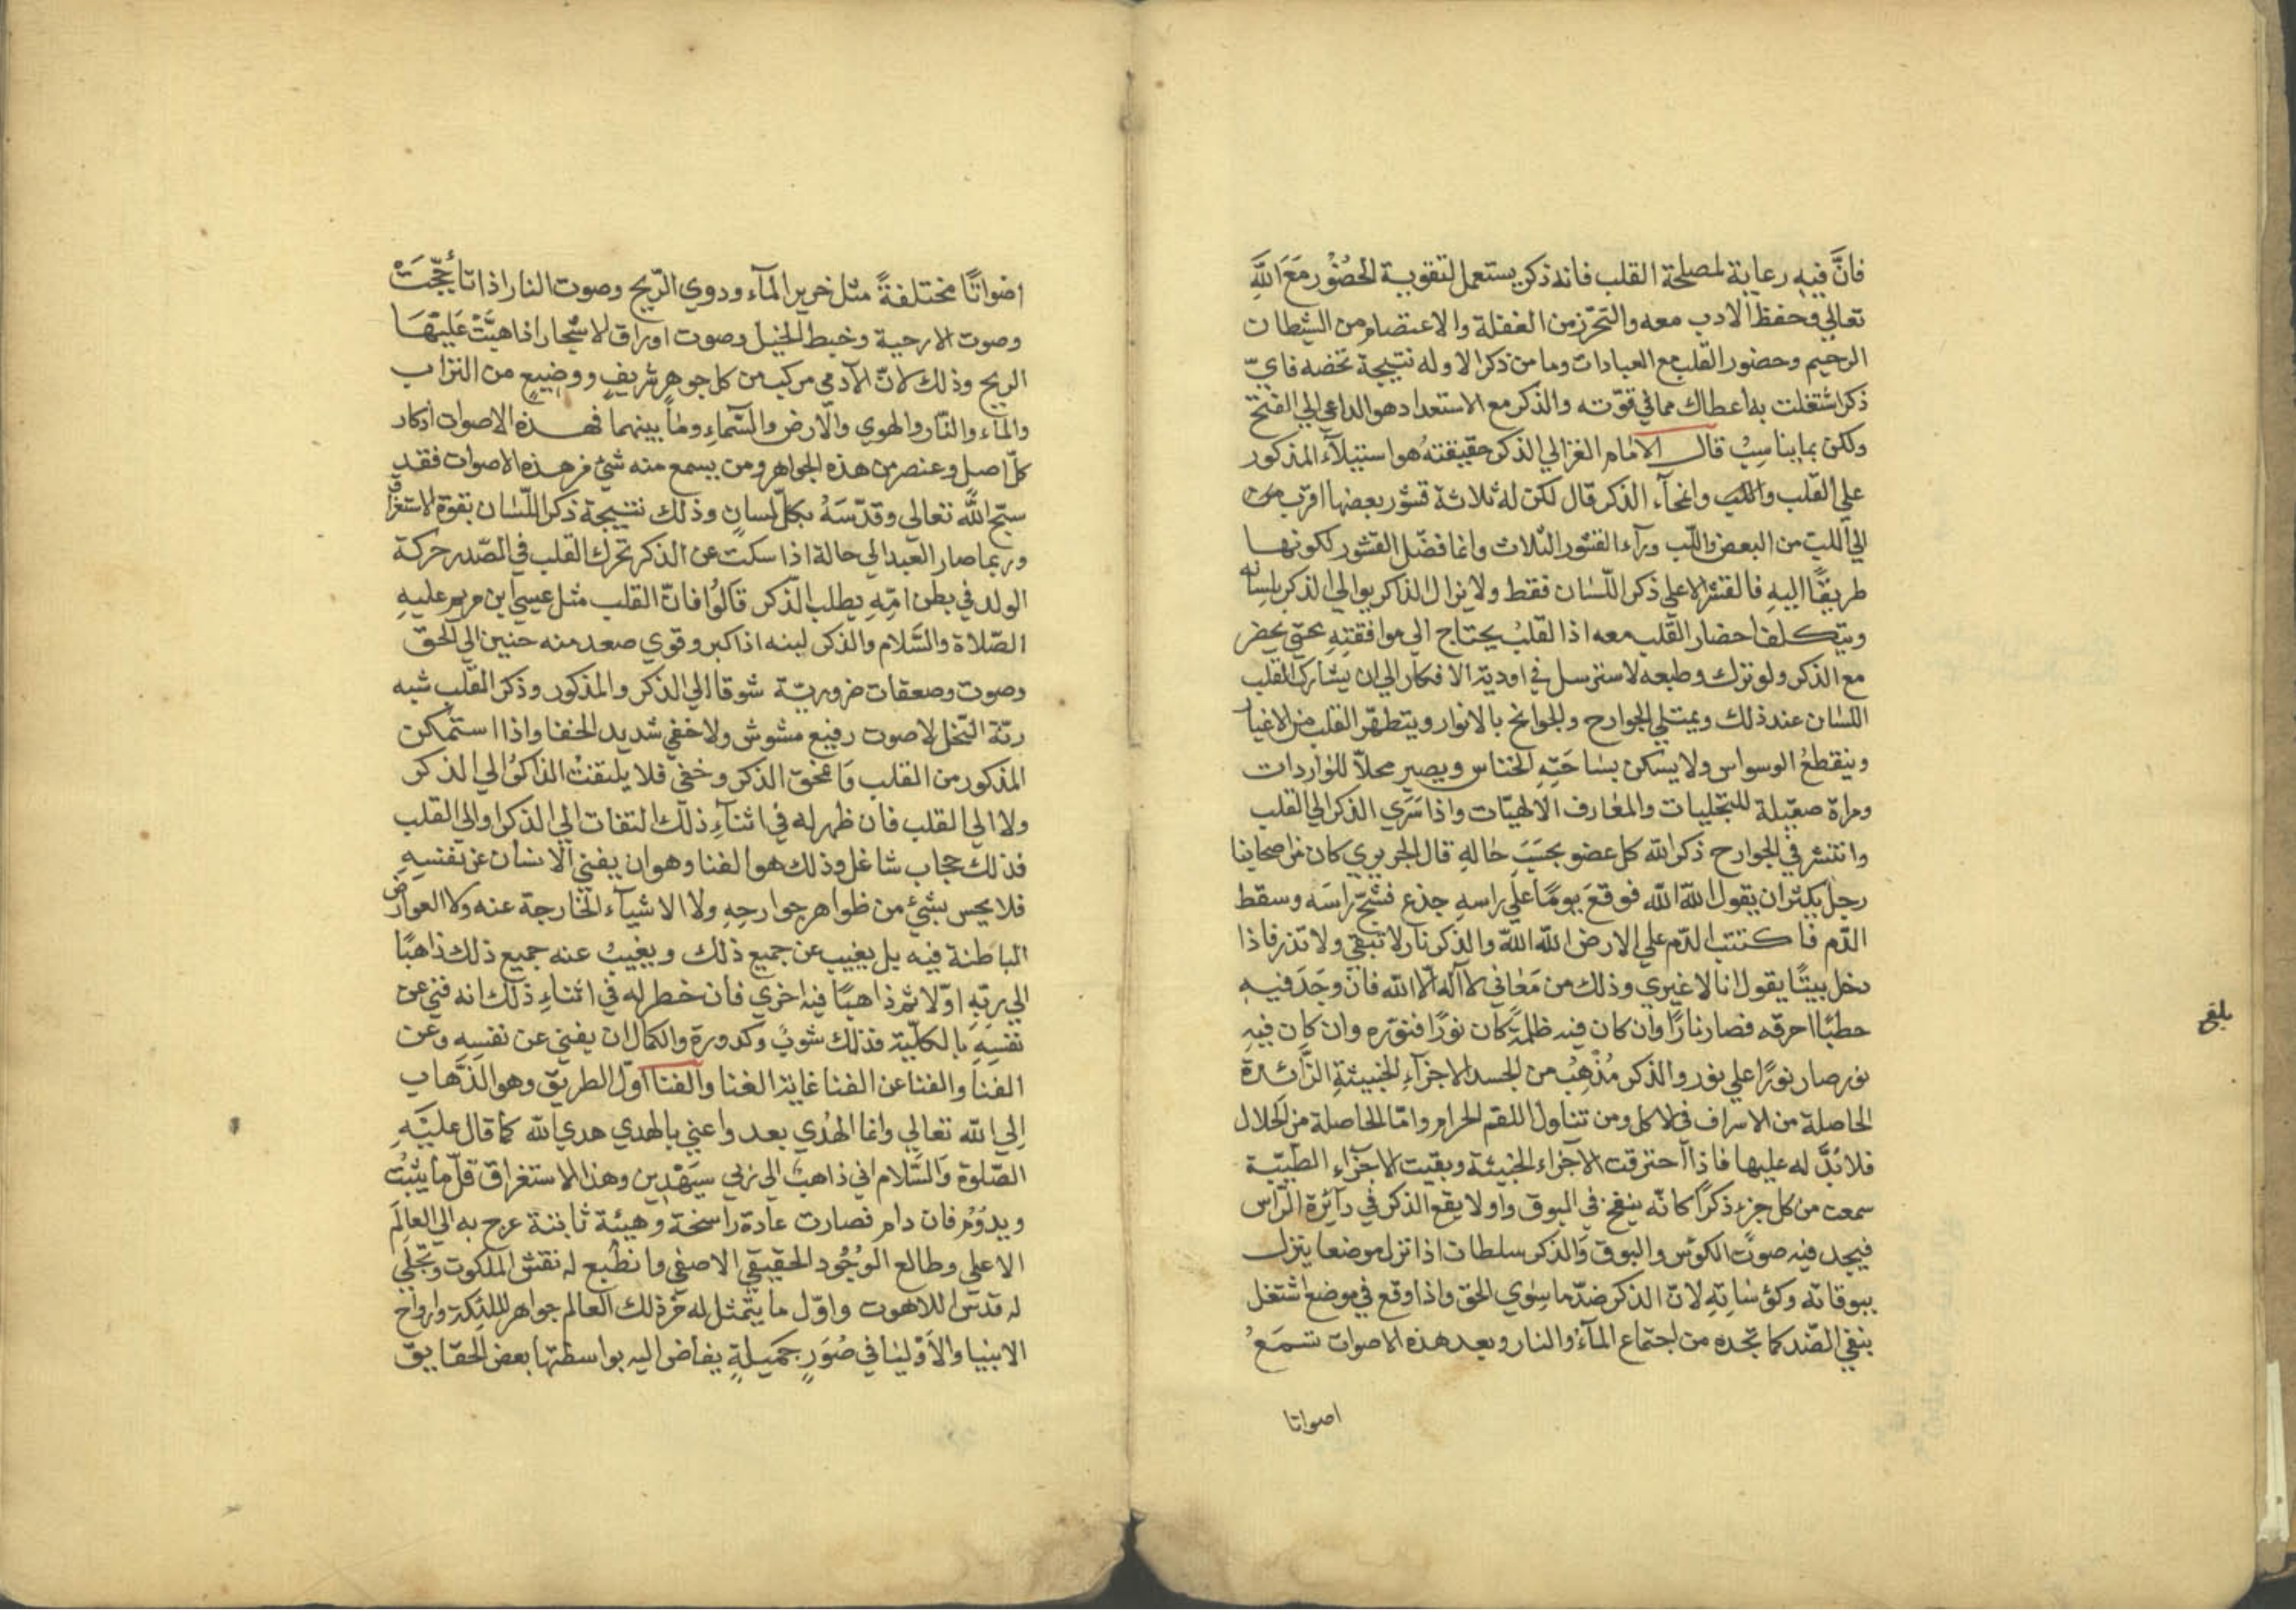 فانَّ فيه رعاية لمصلحة القلب فانه ذكر يستعمل لتقوية الحضُوْر مَعَ اللَّهِ
تعالي وحفظ الادب معه والتحرّز من الغفلة والاعتصام من الشيطان
الرجيم وحضور القلب مع العبادات وما من ذكر الا وله نتيجة تخصه فايّ
ذكر اشتغلت به أعطاك مما في قوّته والذكر مع الاستعداد هو الداعي الي الفتح
ولكن بما يناسِبُ قال الامام الغزالي الذكر حقيقتهُ هو استيلآء المذكور
علي القلب وانمحآء الذكر قال لكن له ثلاثة قشور بعضها اقرب من
الي اللبّ من البعض واللّب ورآء القشور الثلاث وانما فضّل القشور لكونها
طريقًا اليهِ فالقشر الاعلي ذكر اللّسان فقط ولا يزال الذاكر يوالي الذكر بلسانه
ويتكلف احضار القلب معه اذ القلبُ يحتاج الي موافقتهِ حتي يحضر
مع الذكر ولو ترك وطبعه لاسترسل في اودية الافكار الي ان يشارك القلب
اللسان عند ذلك ويمتلي الجوارح والجوانح بالانوار ويتطهّر القلب من الاغيار
وينقطعُ الوسواس ولا يسكن بساحَتِهِ الخناس ويصير محلاّ للواردات
ومراة صقيلة للتجليات والمعارف الالهيّات واذا سَرَي الذكر الي القلب
وانتشر في الجوارح ذكر الله كل عضو بحسَبَ حالهِ قال الجريري كان من اصحابنا
رجل يكثر ان يقول اللّه اللّه فوقعَ يومًا علي راسهِ جذع فشجّ راسَه وسقط
الدّم فاكتتب الدّم علي الارض اللّه اللّه والذكر نار لا تبقي ولا تذر فاذا
دخل بيتًا يقول انا لا غيري وذلك من مَعَاني لا آله الّا الله فان وجَدَ فيهِ
حطبًا احرقه فصار نارًا وان كان فيه ظلمةً كان نورًا فنوّره وان كان فيهِ
نور صار نورًا علي نور والذكر مُذْهِبُ من الجسد الاجزآءِ الخبيثةِ الزَّائدة
الحاصلة من الاسراف في الاكل ومن تناول اللقم الحرام وامّا الحاصلة من الحلال
فلا بُدَّ له عليها فاذا احترقت الآجزاء الخبيثة وبقيت الاجزآءِ الطّيبّة
سمعت من كل جزء ذكرًا كانّه ينفخ في البوق واولا يقع الذكر في دآئرة الرّاس
فيجد فيه صوت الكوس والبوق وَالذكر سلطان اذا نزل موضعا ينزل
ببوقاته وكوْساتِهِ لانّ الذكر ضدّ ما سِوي الحق واذا وقع في موضع اشتغل
بنفي الضّد كما تجده من اجتماع المآءُ والنار وبعد هذه الاصوات تسمَعُ
اصواتا
بلغ
اصْواتًا مختلفةً مثل خرير المآء ودوي الرّيح وصوت النار اذا تاُجّجَتْ
وصوت الارحية وخبط الخيل وصوت اوراق الاشجار اذا هبَّتْ عَليْهَا
الريح وذلك لانّ الآدمي مركب من كل جوهرٍ شريفٍ ووضيعٍ من التراب
والمآء والنّار والهوي والارض والسَّماءِ وما بينهما فهذه الاصوات أذكار
كلّ اصل وعنصر من هذه الجواهر ومن يسمع منه شئ من هذه الاصوات فقد
سبّح اللّه تعالي وقدّسَهُ بكلّ لسانٍ وذلك نتيجة ذكر اللّسان بقوة الاستغراق
وربما صار العبد الي حالة اذا سكت عن الذكر تحرك القلب في الصّدر حركة
الولد في بطن امّهِ يطلب الذّكر قالوُا فانّ القلب مثل عيسي ابن مريم عليهِ
الصّلاة والسَّلام والذكر لبنه اذا كبر وقوي صعد منه حنين الي الحق
وصوت وصعقات ضروريّة شوقا الي الذكر والمذكور وذكر القلب شبه
رنّة النّحل لا صوت رفيع مشوش ولا خفي شديد الخفا واذا استمكن
المذكور من القلب وَامحق الذكر وخفي فلا يلتفتْ الذاكرُ الي الذكر
ولا الي القلب فان ظهر له في اثنآءِ ذلك التفات الي الذكر او الي القلب
فذلك حجاب شاغل وذلك هو الفنا وهو ان يفني الانسان عن نفسِهِ
فلا يحس بشئ من ظواهر جوارحِهِ ولا الاشيآء الخارجة عنه ولا العوارض
الباطنة فيه بل يغيب عن جميع ذلك ويغيبُ عنه جميع ذلك ذاهبًا
الي ربّهِ اوّلا ثم ذاهبًا فيه اخري فان خطر له في اثناءِ ذلك انه فني عن
نفسِهِ بالكلّية فذلك شوبٌ وكدورة والكمال ان يفني عن نفسِهِ وعن
الفنا والفنا عن الفنا غاية الفنا والفنا اوّل الطريق وهو الذّهاب
اِلي اللّه تعالي وانما الهُدي بعد واعني بالهدي هدي اللّه كما قال عليْهِ
الصّلوة وَالسَّلام اني ذاهبٌ الي ربي سيَهْدِين وهذا الاستغراق قلّ ما يثبُت
ويدوُم فان دام فصارت عادة راسخة وهيئة ثابتة عرج به الي العالَم
الاعلي وطالع الوُجُود الحقيقي الاصفي وانطبع له نقش الملكوت وتجلّي
له قدس اللاهوت واوّل ما يتمثل له من ذلك العالم جواهر الملئكة وارواح
الانبيا والاَوْليا في صُوَرٍ جميلةٍ يفاض اليه بواسطتها بعض الحقايق